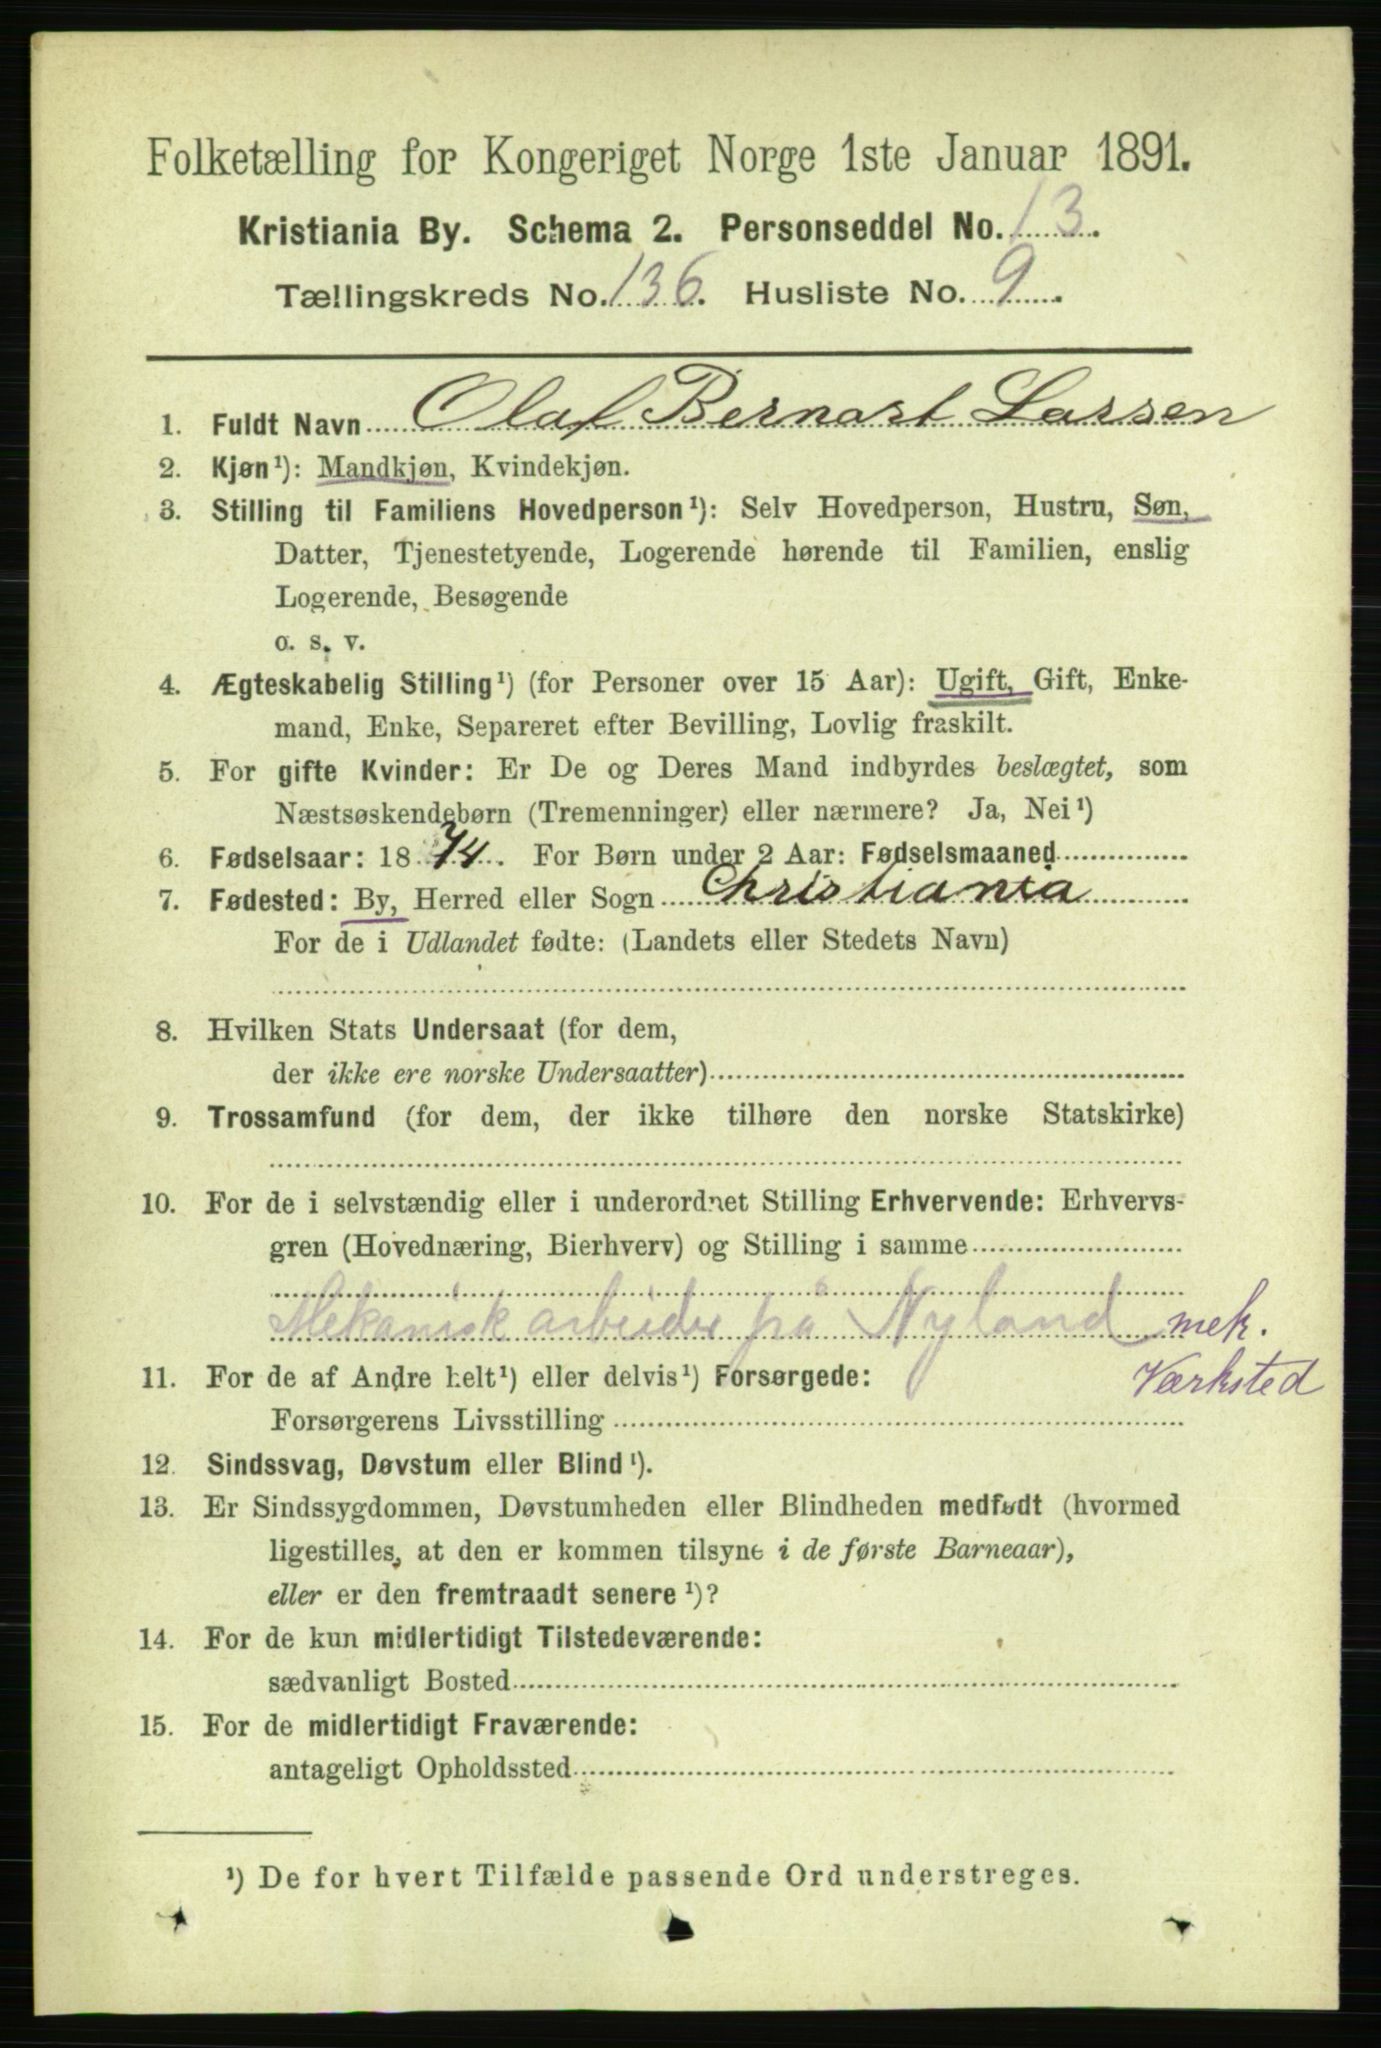 Folketælling for Kongeriget Norge 1ste Januar 1891.
Kristiania By. Schema 2. Personseddel No. 13.
Tællingskreds No. 136. Husliste No. 9.
1. Fuldt Navn Olaf Bernart Larsen
2. Kjøn¹): Mandkjøn, Kvindekjøn.
3. Stilling til Familiens Hovedperson¹): Selv Hovedperson, Hustru, Søn,
Datter, Tjenestetyende, Logerende hørende til Familien, enslig
Logerende, Besøgende
o. s. v.
4. Ægteskabelig Stilling¹) (for Personer over 15 Aar): Ugift, Gift, Enke-
mand, Enke, Separeret efter Bevilling, Lovlig fraskilt.
5. For gifte Kvinder: Er De og Deres Mand indbyrdes beslægtet, som
Næstsøskendebørn (Tremenninger) eller nærmere? Ja, Nei¹)
6. Fødselsaar: 1874. For Børn under 2 Aar: Fødselsmaaned
7. Fødested: By, Herred eller Sogn Christiania
For de i Udlandet fødte: (Landets eller Stedets Navn)
8. Hvilken Stats Undersaat (for dem,
der ikke ere norske Undersaatter)
9. Trossamfund (for dem, der ikke tilhøre den norske Statskirke)
10. For de i selvstændig eller i underordnet Stilling Erhvervende: Erhvervs-
gren (Hovednæring, Bierhverv) og Stilling i samme
Mekanisk arbeider på Nyland mek.
Værksted
11. For de af Andre helt¹) eller delvis¹) Forsørgede:
Forsørgerens Livsstilling
12. Sindssvag, Døvstum eller Blind¹).
13. Er Sindssygdommen, Døvstumheden eller Blindheden medfødt (hvormed
ligestilles, at den er kommen tilsyne i de første Barneaar),
eller er den fremtraadt senere¹)?
14. For de kun midlertidigt Tilstedeværende:
sædvanligt Bosted
15. For de midlertidigt Fraværende:
antageligt Opholdssted
¹) De for hvert Tilfælde passende Ord understreges.